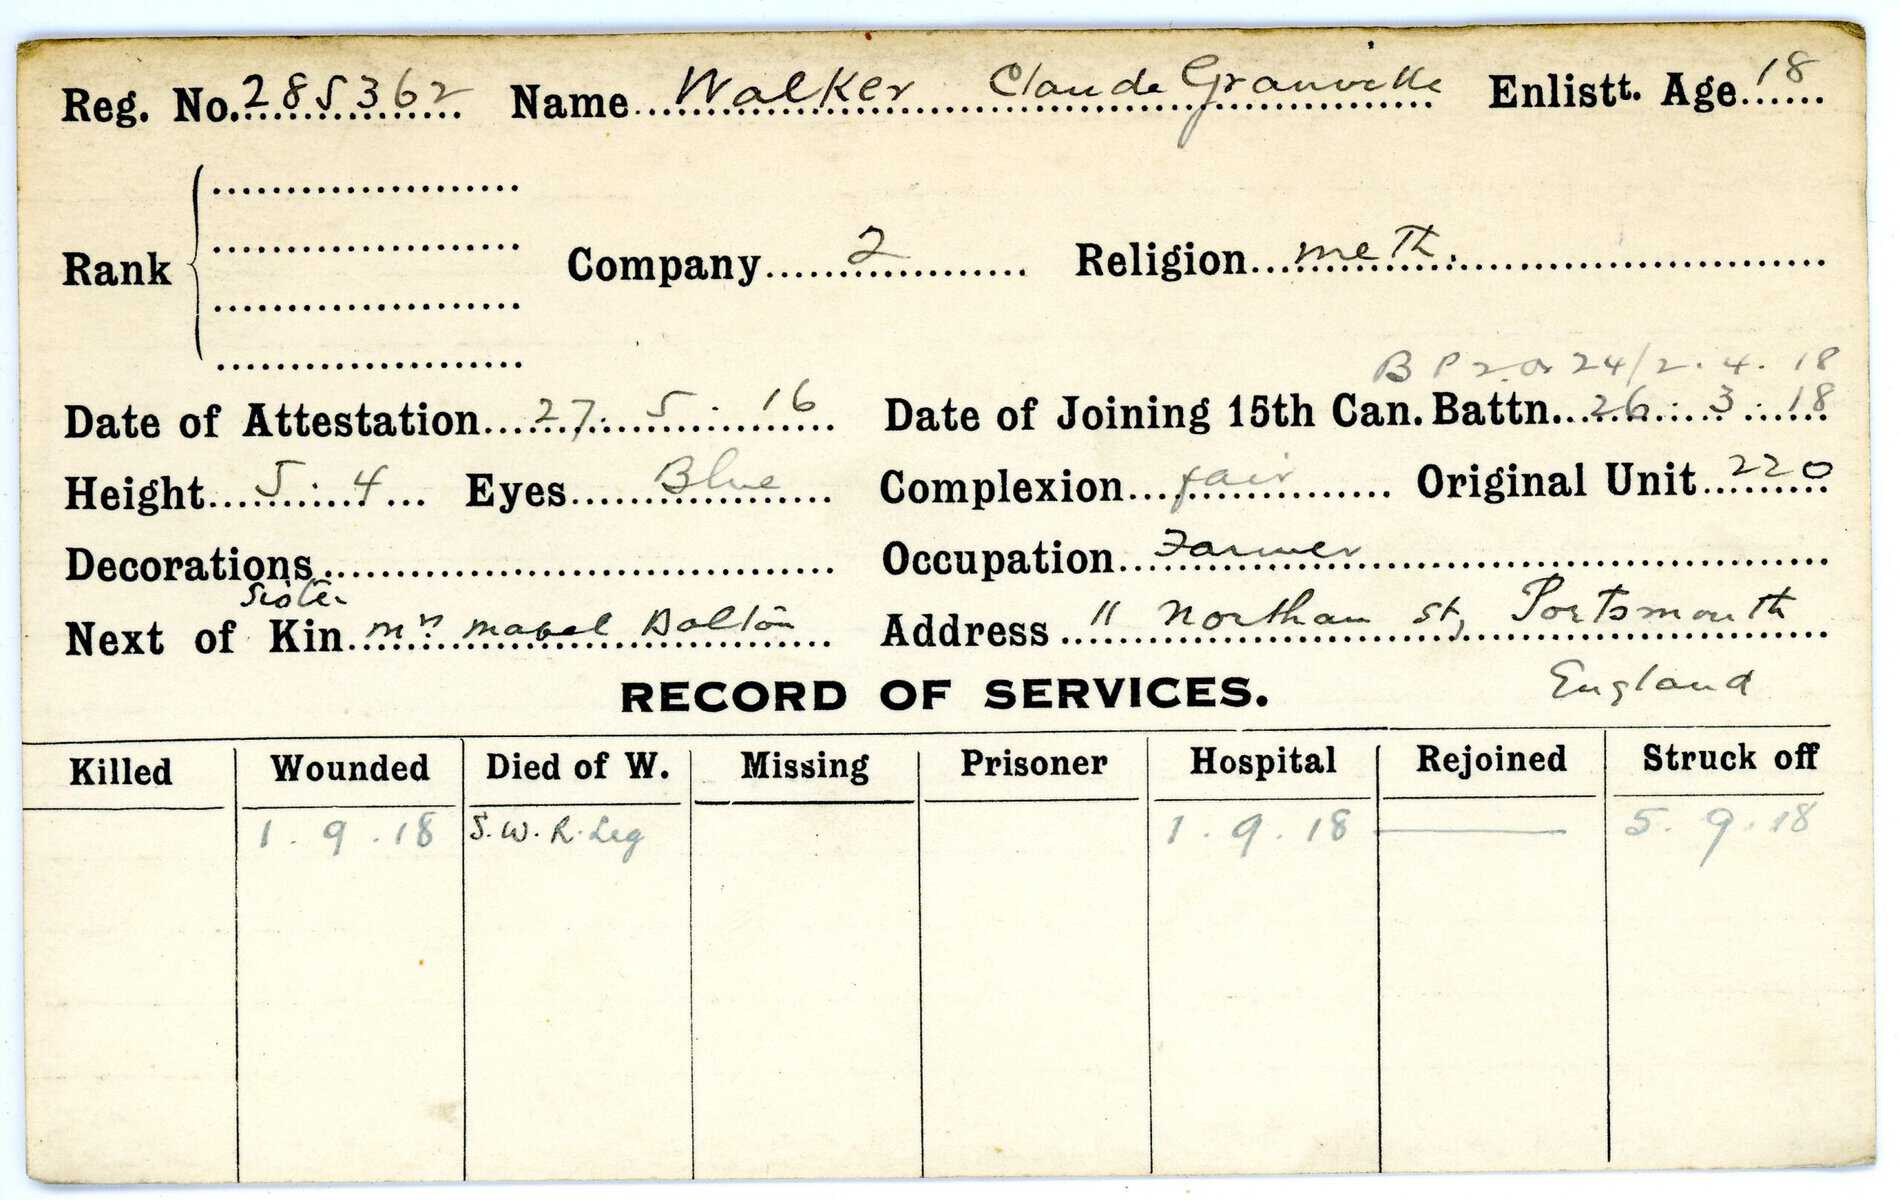 Reg. No. 285362 Name Walker Claude Granville Enlistt. Age 18
Rank Company 2 Religion meth.
B P 2.O. 24/2.4.18
Date of Attestation 27.5.16 Date of Joining 15th Can. Battn. 26.3.18
Height 5.4 Eyes Blue Complexion fair Original Unit 220
Decorations Occupation Farmer
Sister
Next of Kin Mrs. Mabel Dalton Address 11 Northam St, Portsmouth
England
RECORD OF SERVICES.
Killed Wounded Died of W. Missing Prisoner Hospital Rejoined Struck off
1.9.18 S.W.R. Leg 1.9.18 — 5.9.18